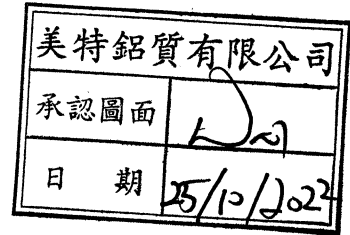 美特鋁質有限公司
承認圖面
日 期 25/10/2022